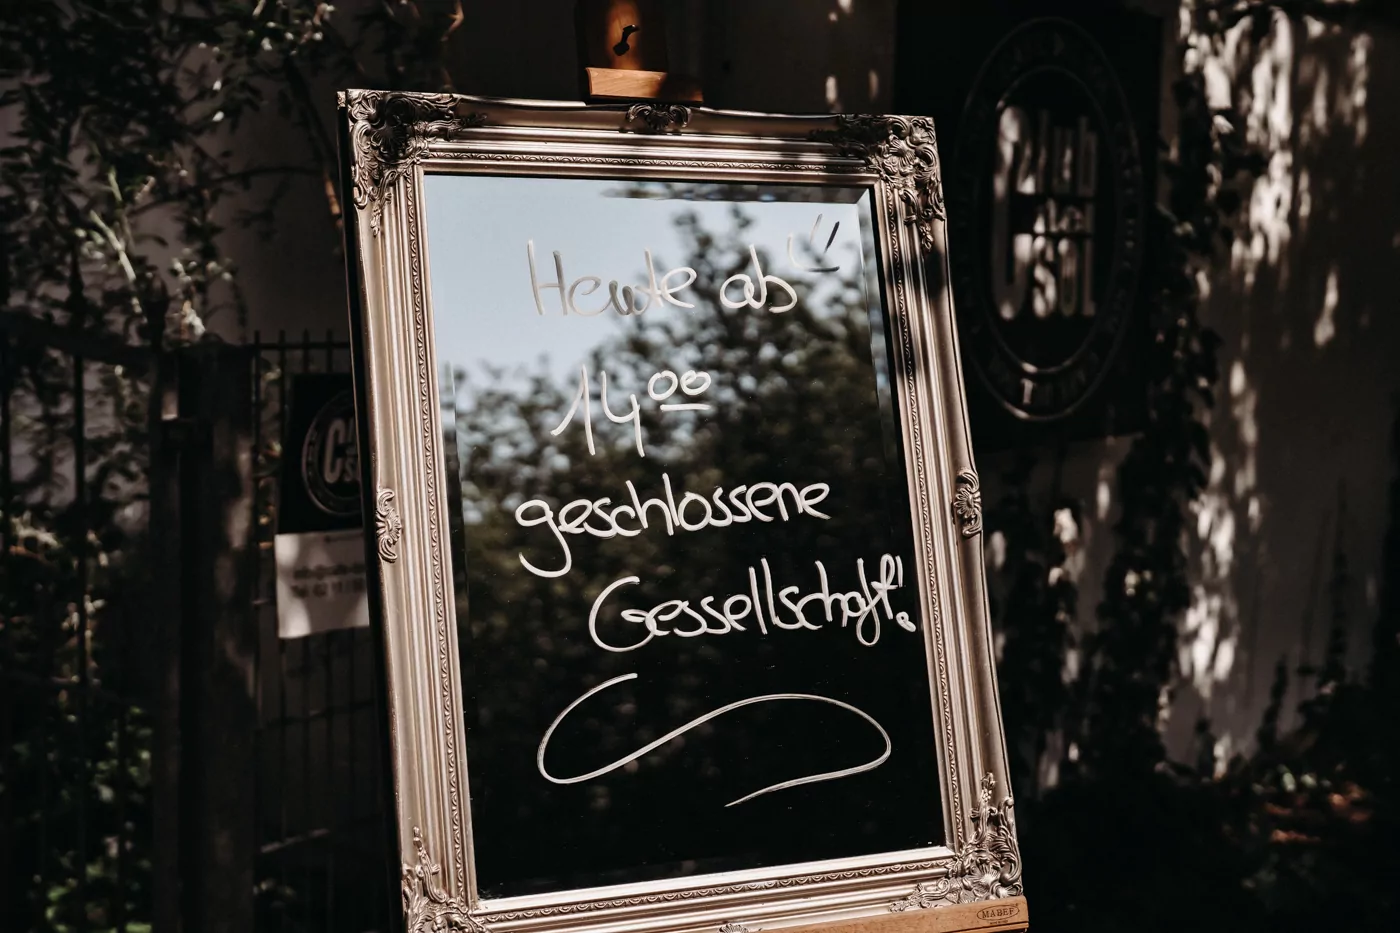 Heute ab
14 00
geschlossene
Gessellschaft!
Club
del
Sol
MABEF